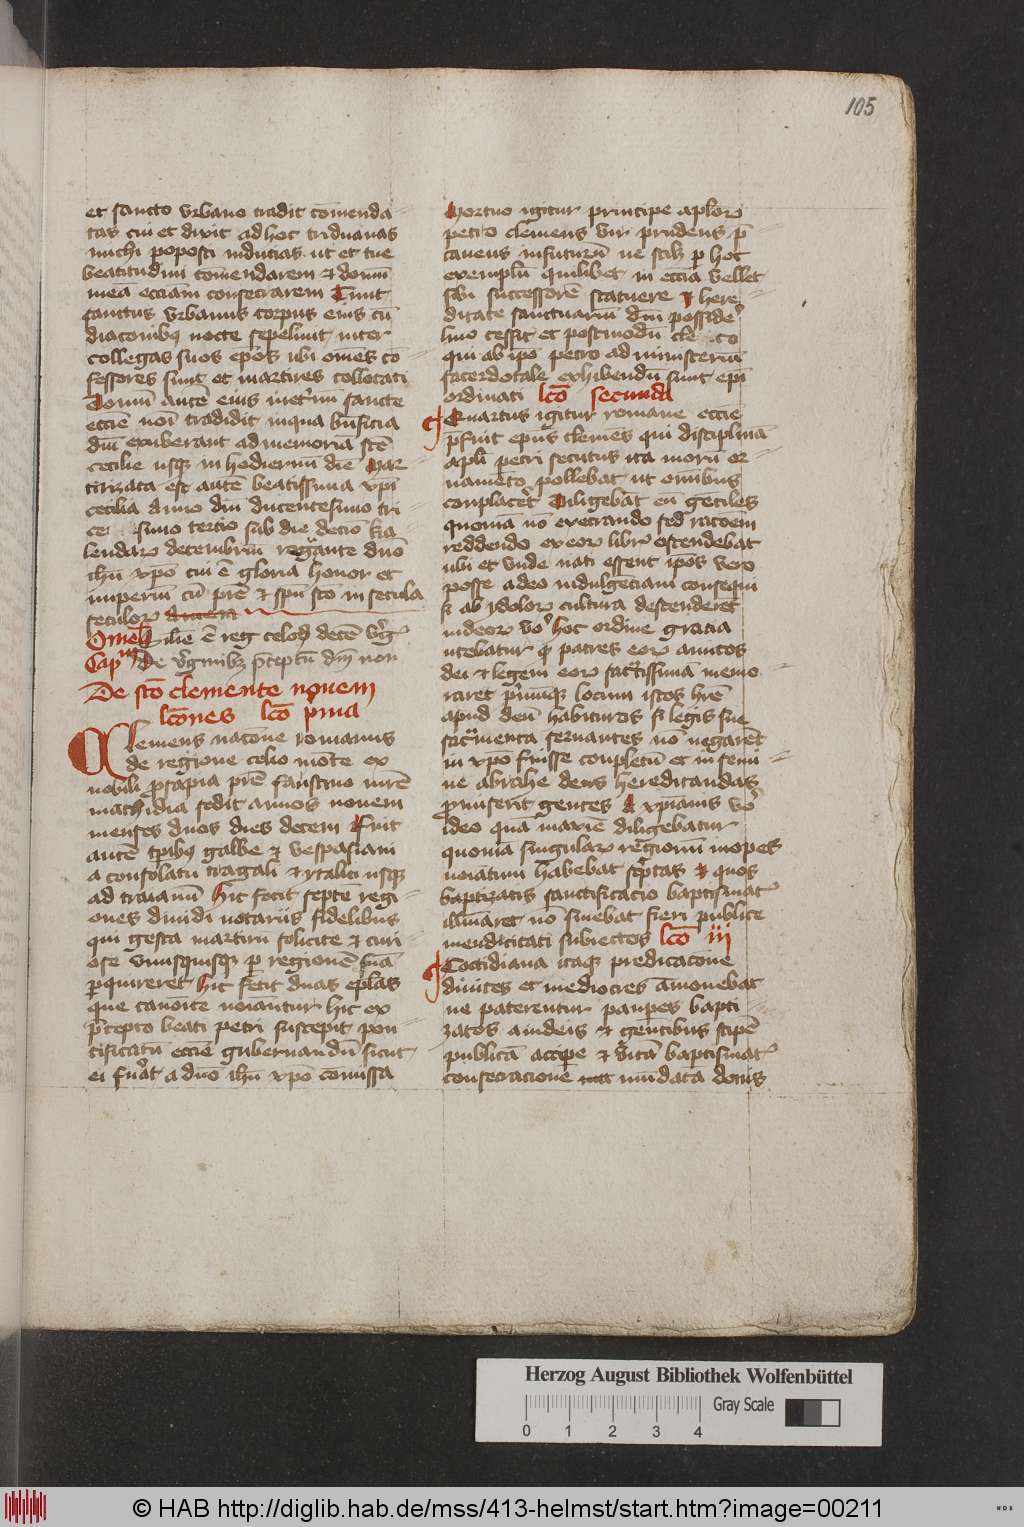 105
et sancto vrbano tradit comenda-
tas cui et dixit ad hoc triduanas
michi poposci inducias ut et tue
beatitudini comendarem et domu
mea ecciam consecrarem Tunc
sanctus vrbanus corpus eius cu
diaconibus nocte sepeliuit inter
collegas suos epos ubi omes co-
fessores sunt et martires collocati
Domu aute eius in eternu sancte
eccie noi tradidit in qua bnficia
dni exuberant ad memoria ste
cecilie usque in hodiernu die Mar-
tirizata est aute beatissima xpi
cecilia anno dni ducentesimo tri
ce simo tercio sub die decio ka
lendar decembriu regnante dno
ihu xpo cui e gloria honor et
imperiu cu pre et spu sco in secula
seculor amen
Omel Sile e reg celor dece virg
Cap De virginibus preceptu dni non
De sco clemente nouem
lcones lco prima
Clemens nacone romanus
de regione celio monte ex
nobili prosapia pre faustino mre
mathidia sedit annos nouem
menses duos dies decem Fuit
aute tpibus galbe et vespasiani
a consolatu tragali et ytalici usque
ad traianu Hic fecit septe regi
ones diuidi notariis fidelibus
qui gesta martiru solicite et curi
ose vnusquisque per regione sua
perquireret Hic fecit duas eplas
que canoice noiantur hic ex
precepto beati petri suscepit pon-
tificatu eccie gubernandu sicut
ei fuerat a dno ihu xpo comissa
Mortuo igitur principe aplor
petro clemens vir prudens p
cauens in futuru ne scilz per hoc
exemplu quilibet in eccia vellet
sibi successore statuere et here
ditate sanctuariu dni posside
lino cessit et postmodu cle co
qui ab ipo petro ad ministeriu
sacerdotale exhibendu sunt epi
ordinati lco secunda
Quartus igitur romane eccie
pfuit epus clemes qui disciplina
apli petri secutus ita moru or-
namento pollebat ut omibus
conplaceret Diligebat eu gentiles
quonia no execrando sed racoem
reddendo ex eor libris ostendebat
ubi et vnde nati essent ipos vero
posse adeo indulgenciam consequi
si ab ydolor cultura descenderet
iudeor vero hoc ordine gracia
vtebatur quod patres eor amicos
dei et legem eor sacratissima memo-
raret primumque locum istos hre
apud deu habituros si legis sue
sacramenta seruantes no negaret
in xpo fuisse conpletu et in semi-
ne abrahe deus hereditandas
promiserit gentes A xpianis vero
ideo qua maxie diligebatur
quonia singular regionu inopes
noiatim habebat scriptas et quos
baptizatis sanctificacio baptismatis
illuiaret no sinebat fieri publice
mendicitati subiectos lco iii
Cottidiana itaque predicacone
diuites et mediocres amonebat
ne paterentur paupes bapti-
zatos a iudeis et gentibus stipe
publica accipe et vita baptismatis
consecracione mundata donis
Herzog August Bibliothek Wolfenbüttel
0 1 2 3 4
Gray Scale
© HAB http://diglib.hab.de/mss/413-helmst/start.htm?image=00211
WDB